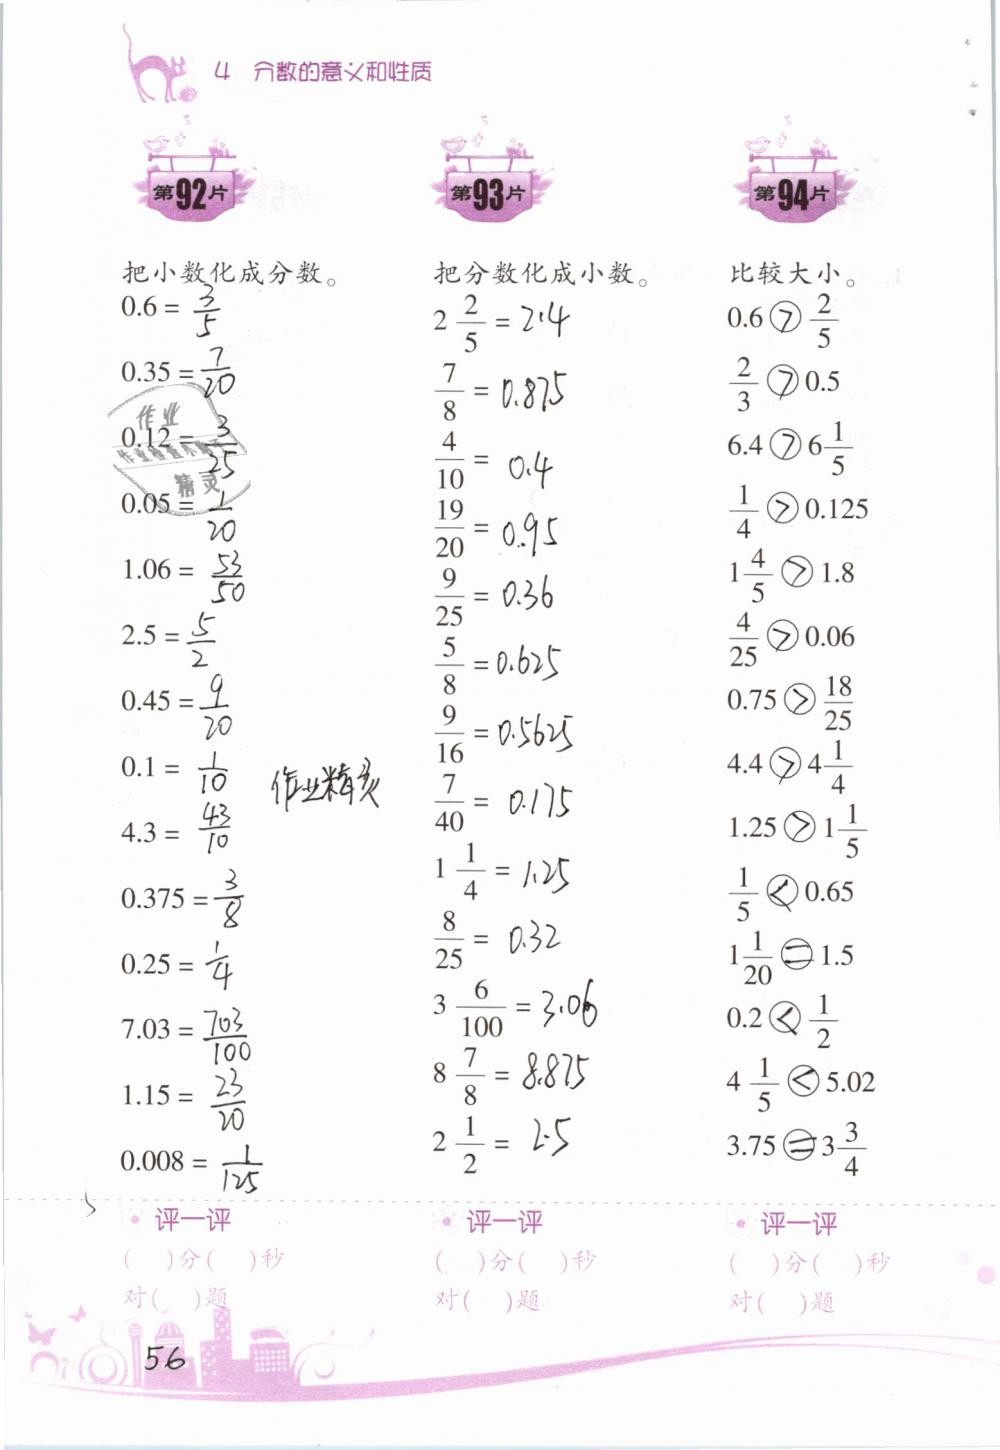 4 分数的意义和性质
第92片
把小数化成分数。
0.6 = 3/5
0.35 = 7/20
0.12 = 3/25
0.05 = 1/20
1.06 = 53/50
2.5 = 5/2
0.45 = 9/20
0.1 = 1/10
4.3 = 43/10
0.375 = 3/8
0.25 = 1/4
7.03 = 703/100
1.15 = 23/20
0.008 = 1/125
作业
精灵
作业精灵
评一评
( )分( )秒
对( )题
第93片
把分数化成小数。
2 2/5 = 2.4
7/8 = 0.875
4/10 = 0.4
19/20 = 0.95
9/25 = 0.36
5/8 = 0.625
9/16 = 0.5625
7/40 = 0.175
1 1/4 = 1.25
8/25 = 0.32
3 6/100 = 3.06
8 7/8 = 8.875
2 1/2 = 2.5
评一评
( )分( )秒
对( )题
第94片
比较大小。
0.6 > 2/5
2/3 > 0.5
6.4 > 6 1/5
1/4 > 0.125
1 4/5 > 1.8
4/25 > 0.06
0.75 > 18/25
4.4 > 4 1/4
1.25 > 1 1/5
1/5 < 0.65
1 1/20 = 1.5
0.2 < 1/2
4 1/5 < 5.02
3.75 = 3 3/4
评一评
( )分( )秒
对( )题
56